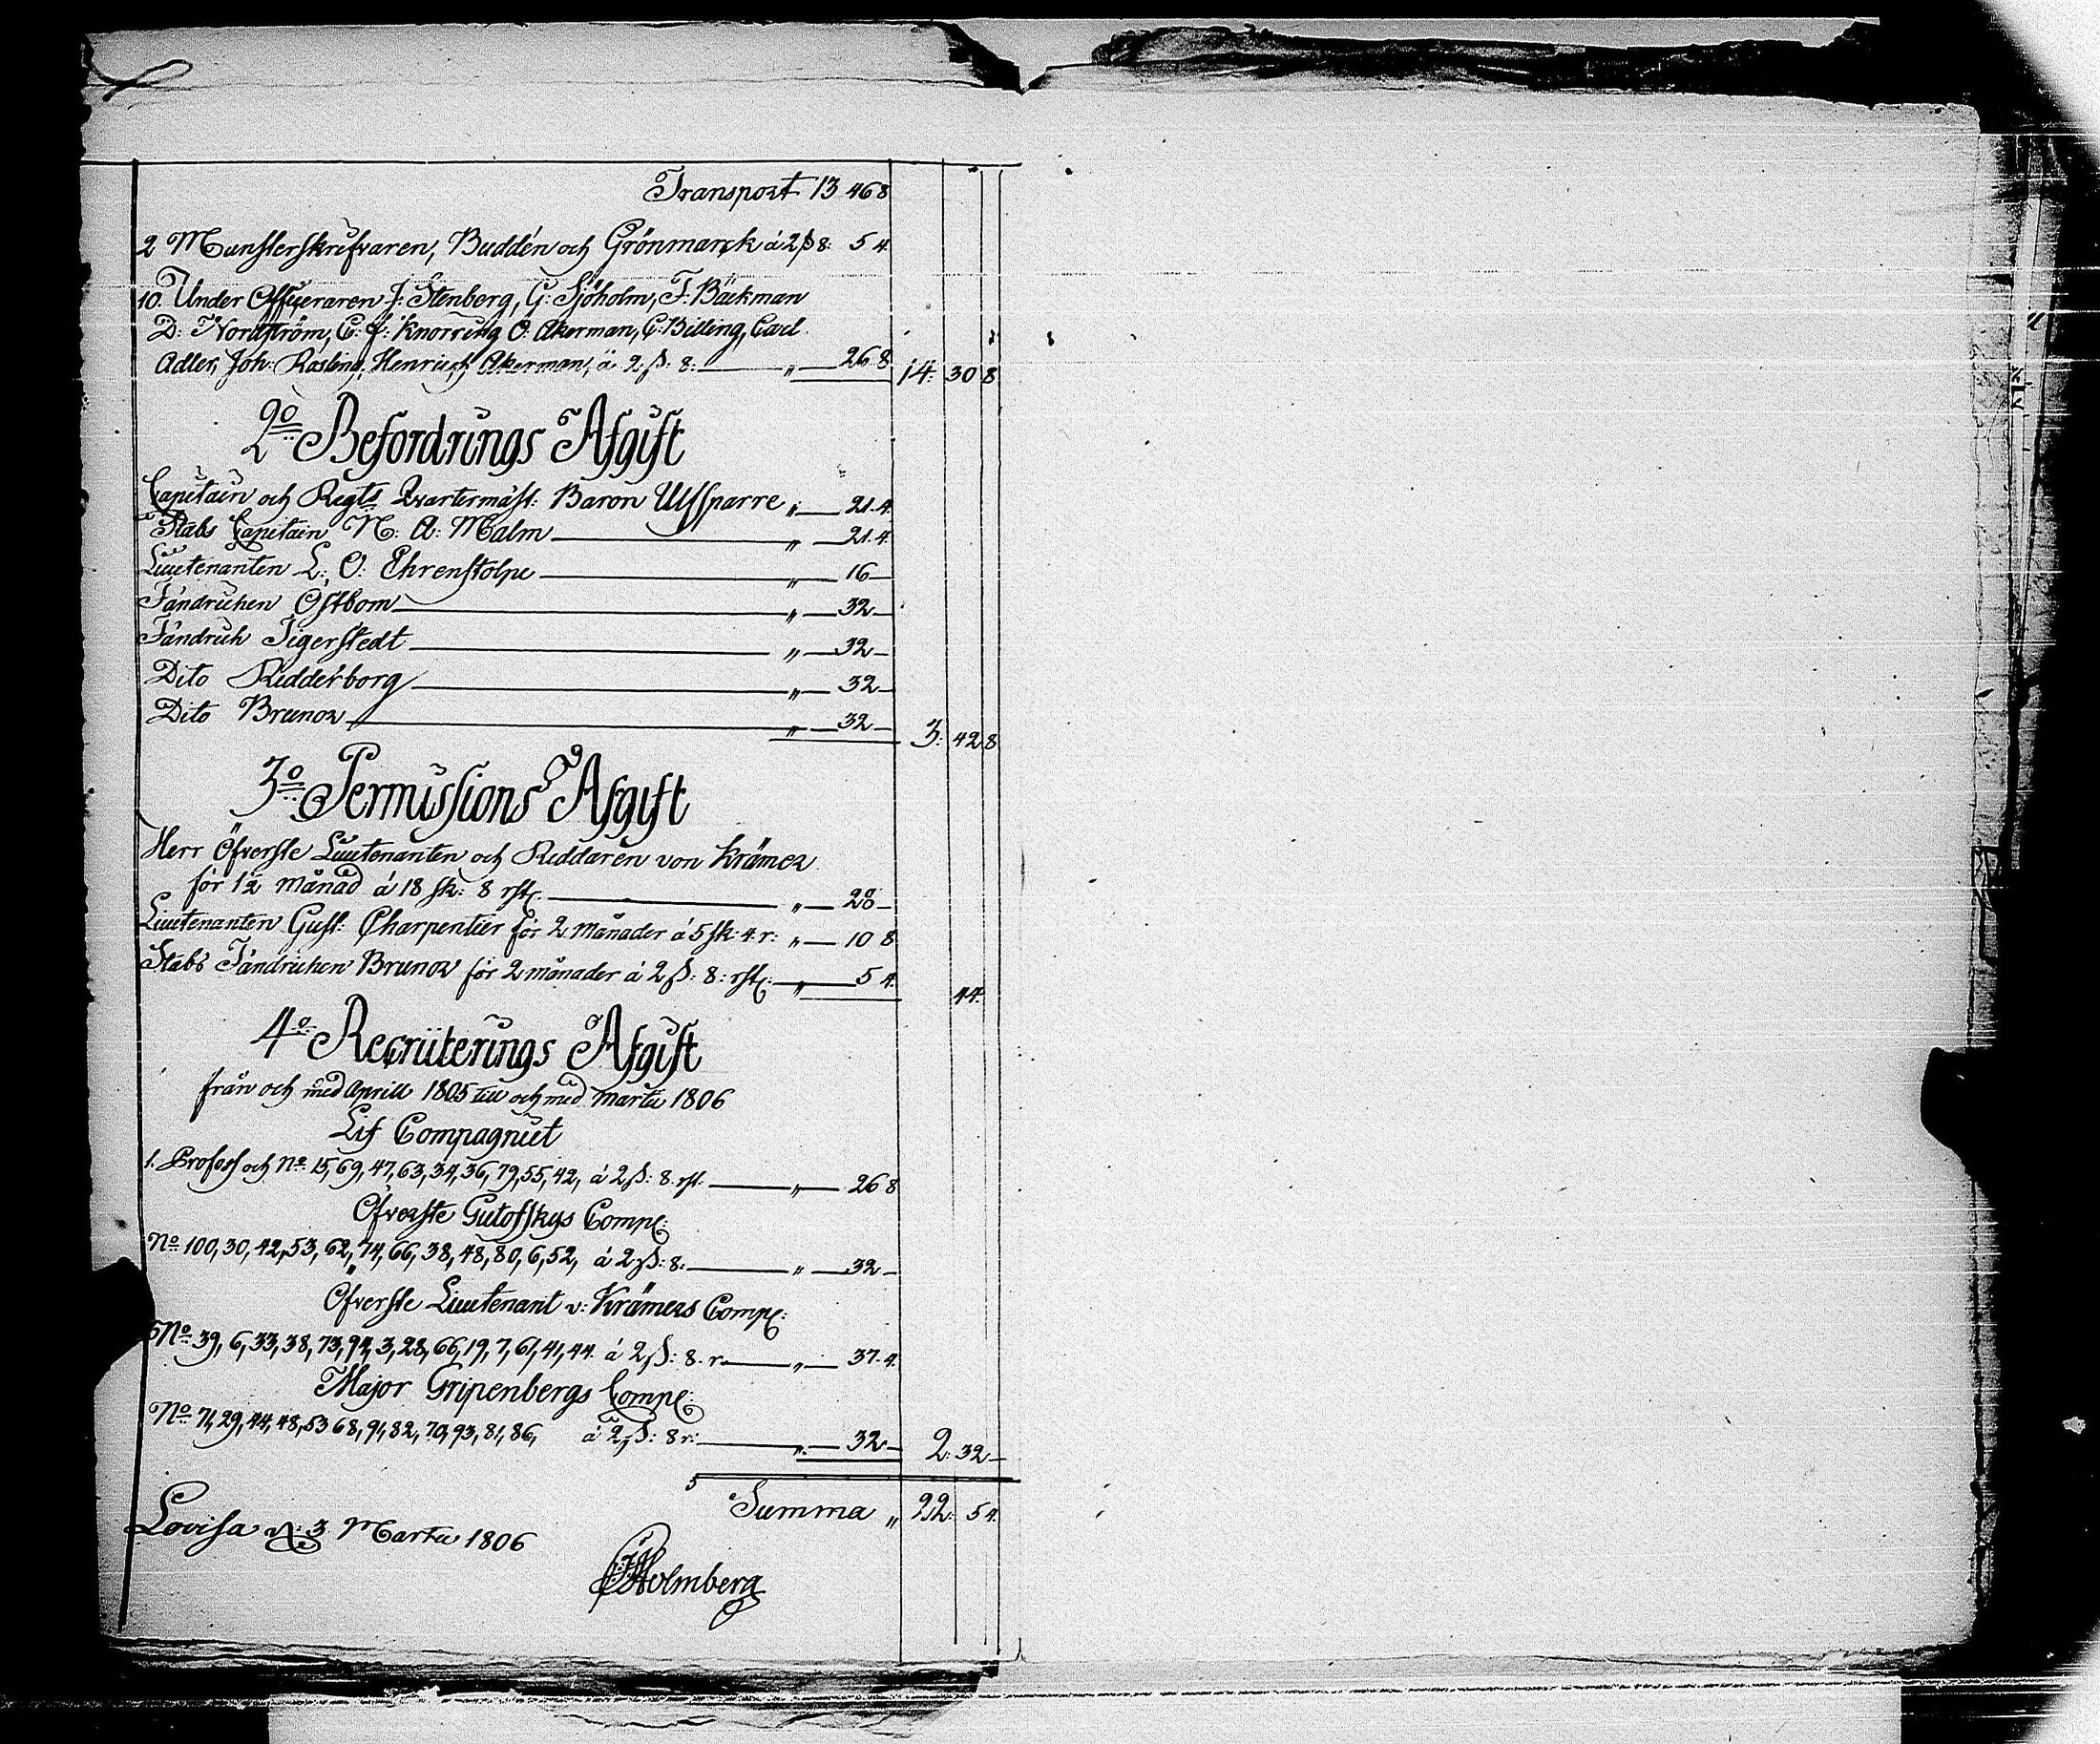 Transport 13 46 8
2 Munsterskrifvaren, Buddén och Grönmarck á 2 ß 8: 5 4.
10. Under Officeraren J: Stenberg, G: Sjöholm, F: Bäckman
D: Nordström, C: F: Knorring O: Akerman, C: Billing, Carl
Adler, Joh: Rosling, Henrich Akerman, á 2 ß: 8: " 26 8 14: 30 8
2o Befordrings Afgift
Capitain och Regts Qvartermäst: Baron Ulfsparre " 21. 4.
Stabs Capitain N: A: Malm " 21. 4.
Lieutenanten L: O: Ehrenstolpe " 16
Fändrichen Ostbom " 32
Fändrich Tigerstedt " 32
Dito Ridderborg " 32
Dito Brunow " 32 3: 42 8
3o Permissions Afgift
Herr Öfverste Lieutenanten och Riddaren von Krämer
för 1½ månad á 18 sk: 8 rst. " 28
Lieutenanten Gust: Charpentier för 2 månader á 5 sk: 4 r: " 10 8
Stabs Fändrichen Brunow för 2 månader á 2 ß: 8: rst: " 5 4. 44.
4o Recrüterings Afgift
från och med Aprill 1805 till och med Martii 1806
Lif Compagniet
1. Profoss och No 15, 69, 47, 63, 34, 36, 79, 55, 42, á 2 ß: 8. rst. " 26 8
Öfverste Gutofskys Comp:
No 100, 30, 42, 53, 62, 74, 66, 38, 48, 80, 6, 52, á 2 ß: 8. " 32
Öfverste Lieutenant v: Krämers Comp:
No 39, 6, 33, 38, 73, 94, 3, 28, 66, 19, 7, 61, 41, 44. á 2 ß: 8. r. " 37. 4.
Major Gripenbergs Comp:
No 71, 29, 44, 48, 53 68, 91, 82, 70, 93, 81, 86, á 2 ß: 8 r: " 32 2: 32
Summa " 22: 5 4.
Lovisa d: 3 Martii 1806
Holmberg